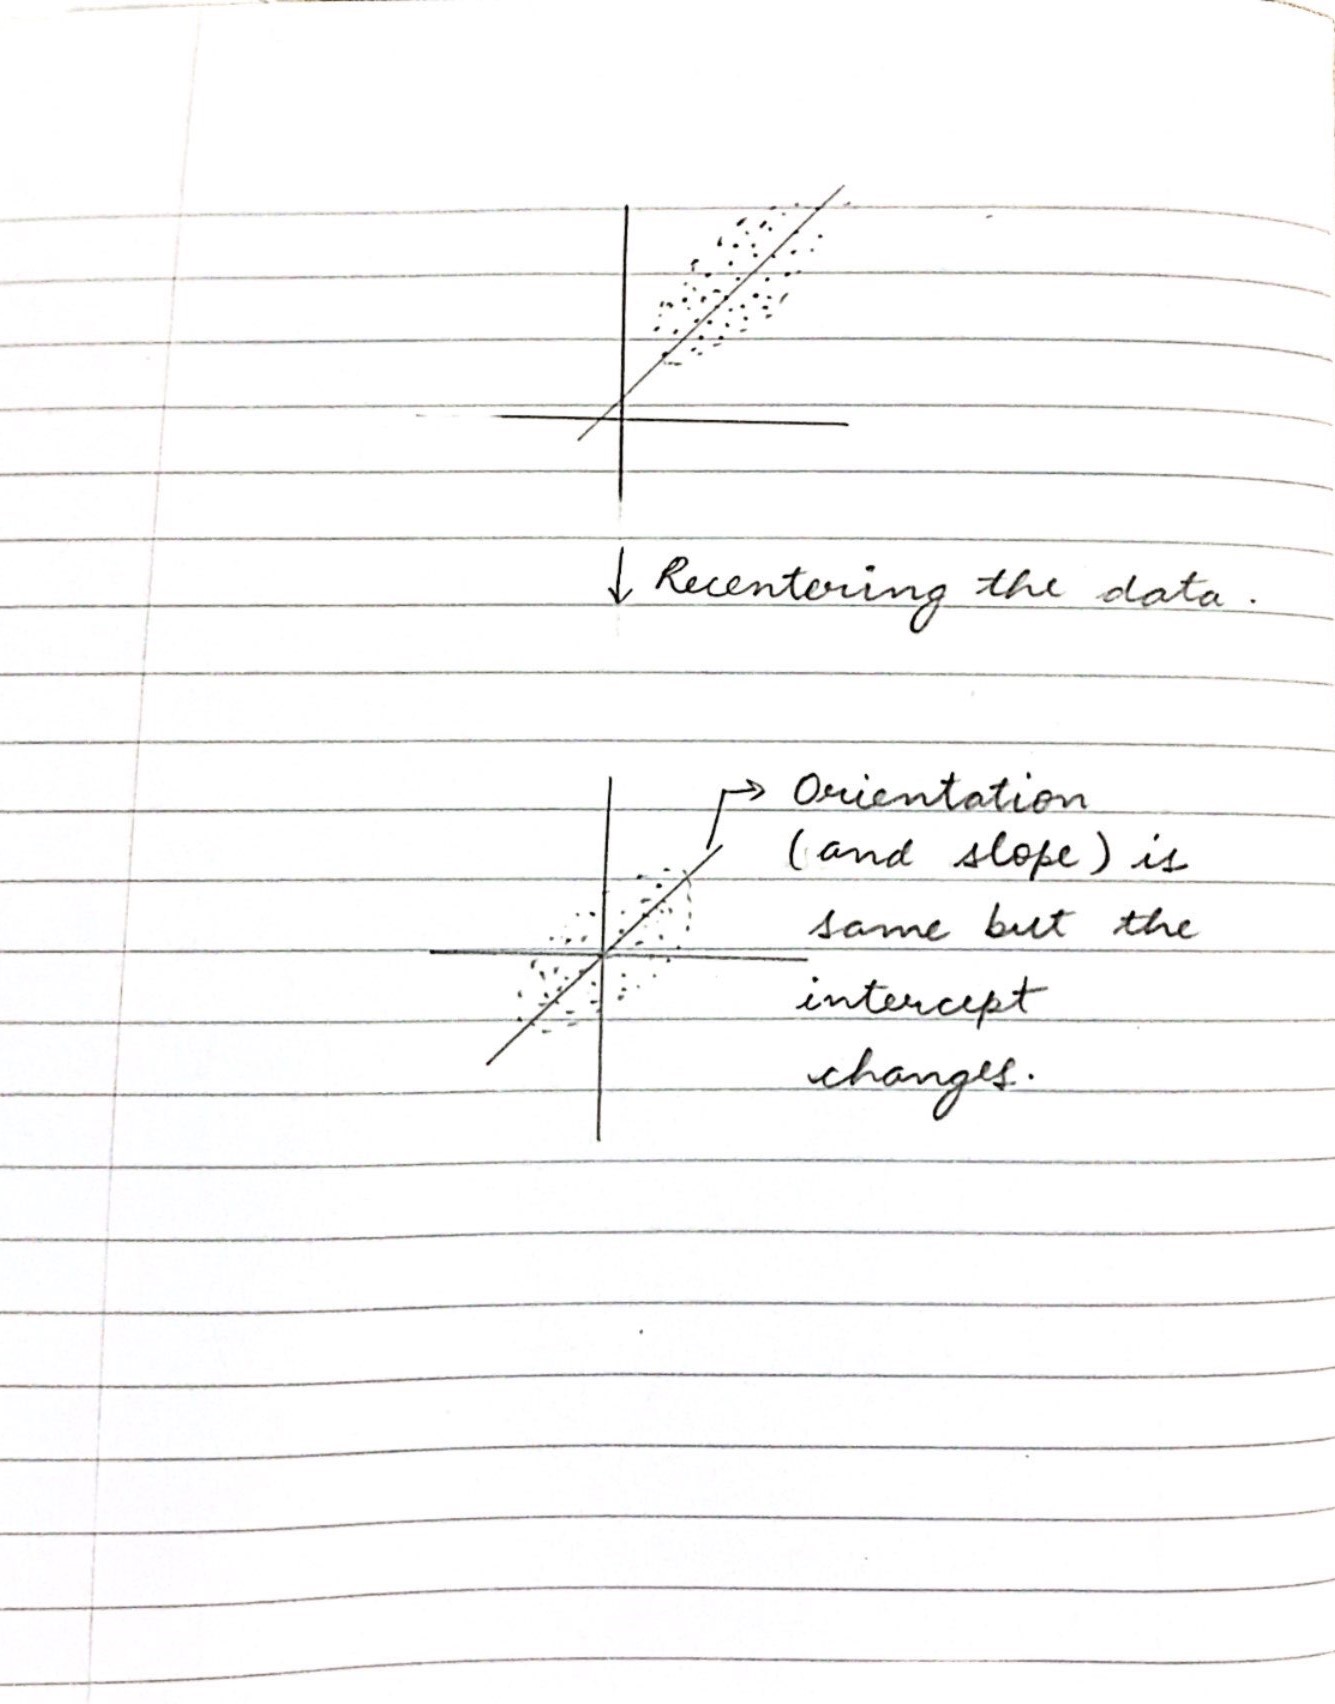 Recentering the data.
Orientation
(and slope) is
same but the
intercept
changes.